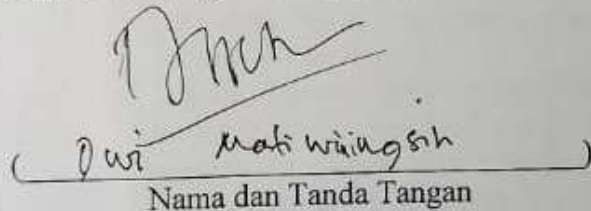 ( Dwi Mati winingsih )
Nama dan Tanda Tangan